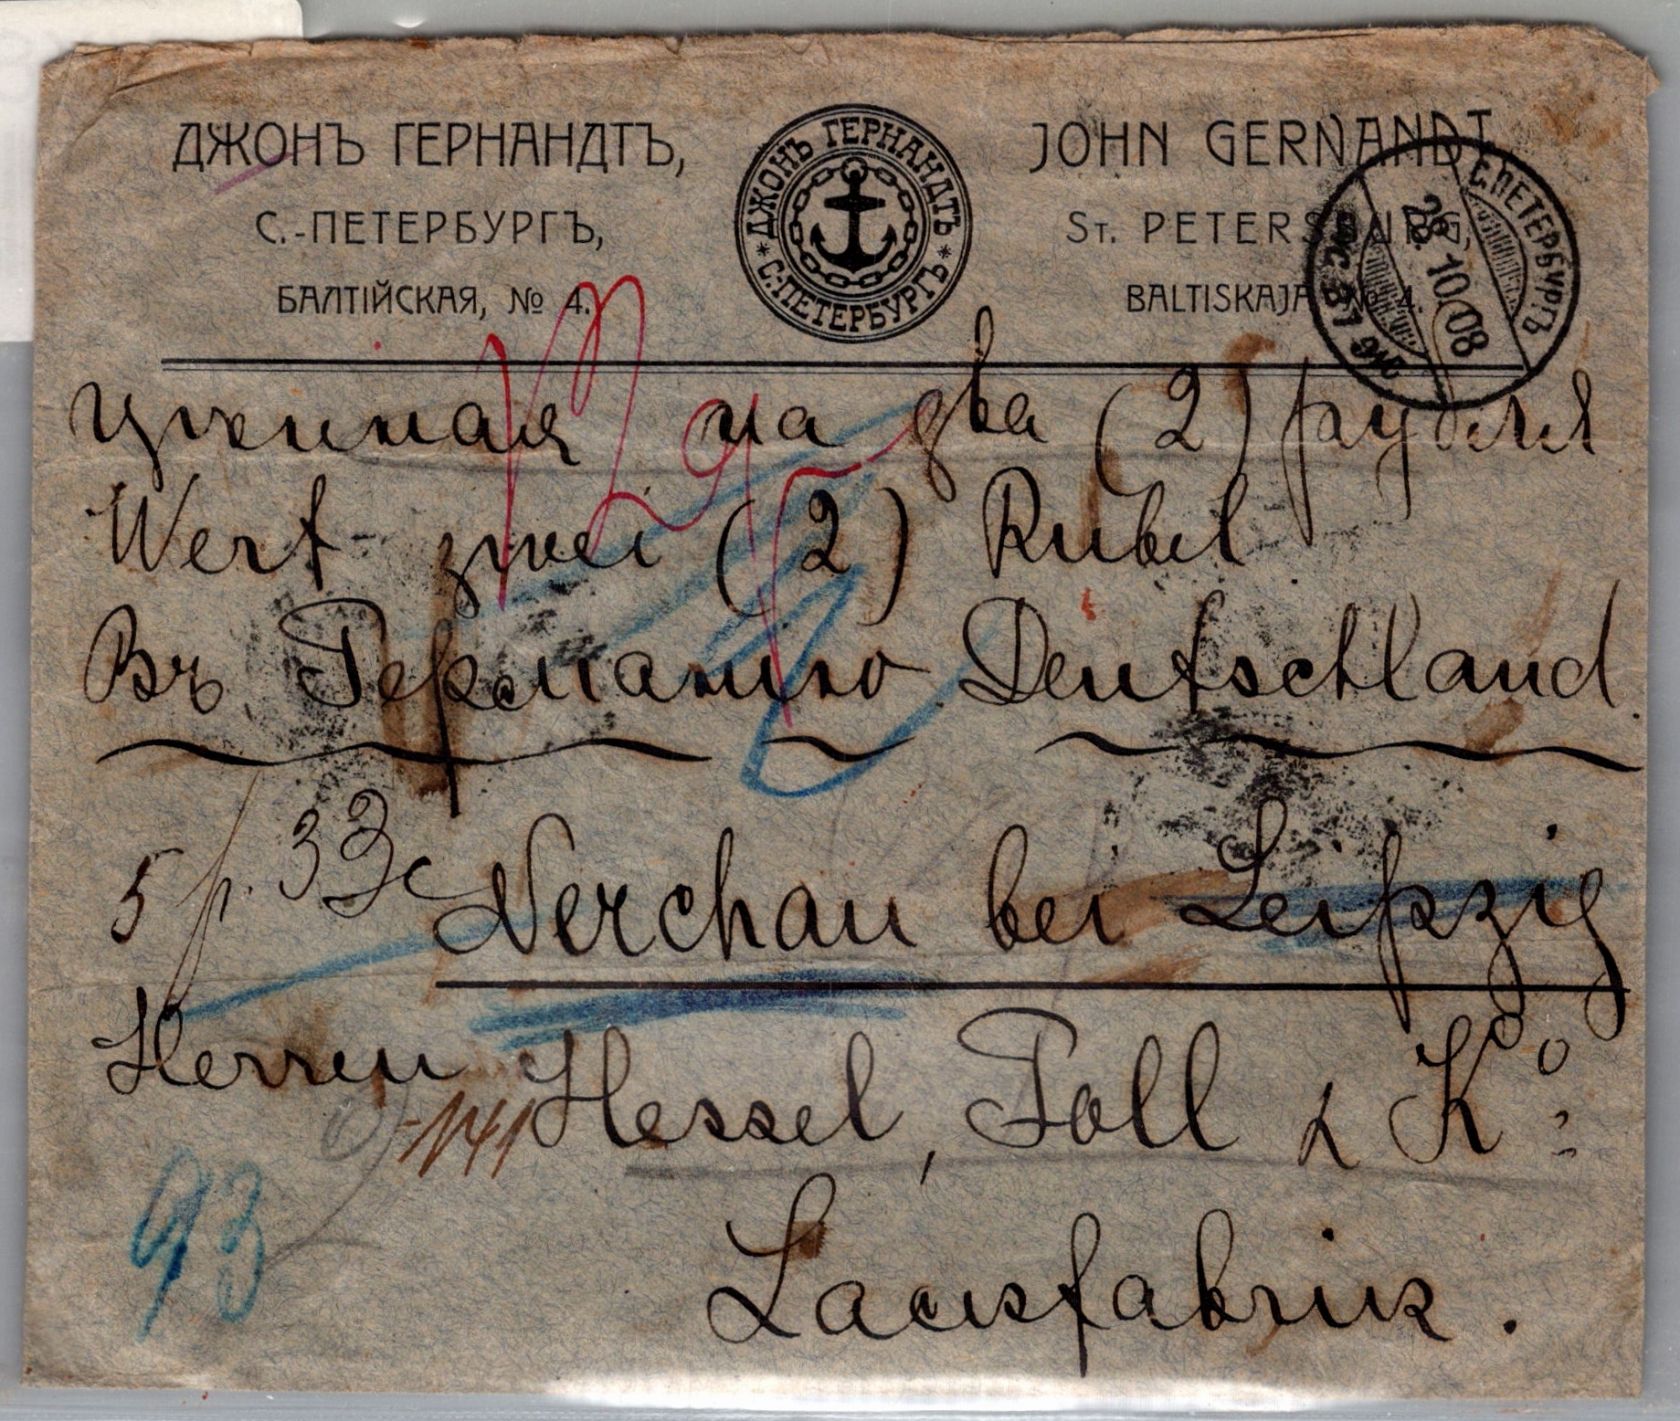 ДЖОНЪ ГЕРНАНДТЪ,
С.-ПЕТЕРБУРГЪ,
БАЛТІЙСКАЯ, № 4.
ДЖОНЪ ГЕРНАНДТЪ
* С.ПЕТЕРБУРГЪ *
JOHN GERNANDT,
ST. PETERSBURG,
BALTISKAJA, No 4.
С.ПЕТЕРБУРГЪ
28.10.08
цѣнная на два (2) рубля
Wert zwei (2) Rubel
Въ Германію Deutschland
5 р. 33
Nerchau bei Leipzig
Herren Hessel, Toll & Kº
141
93
Lackfabrik.